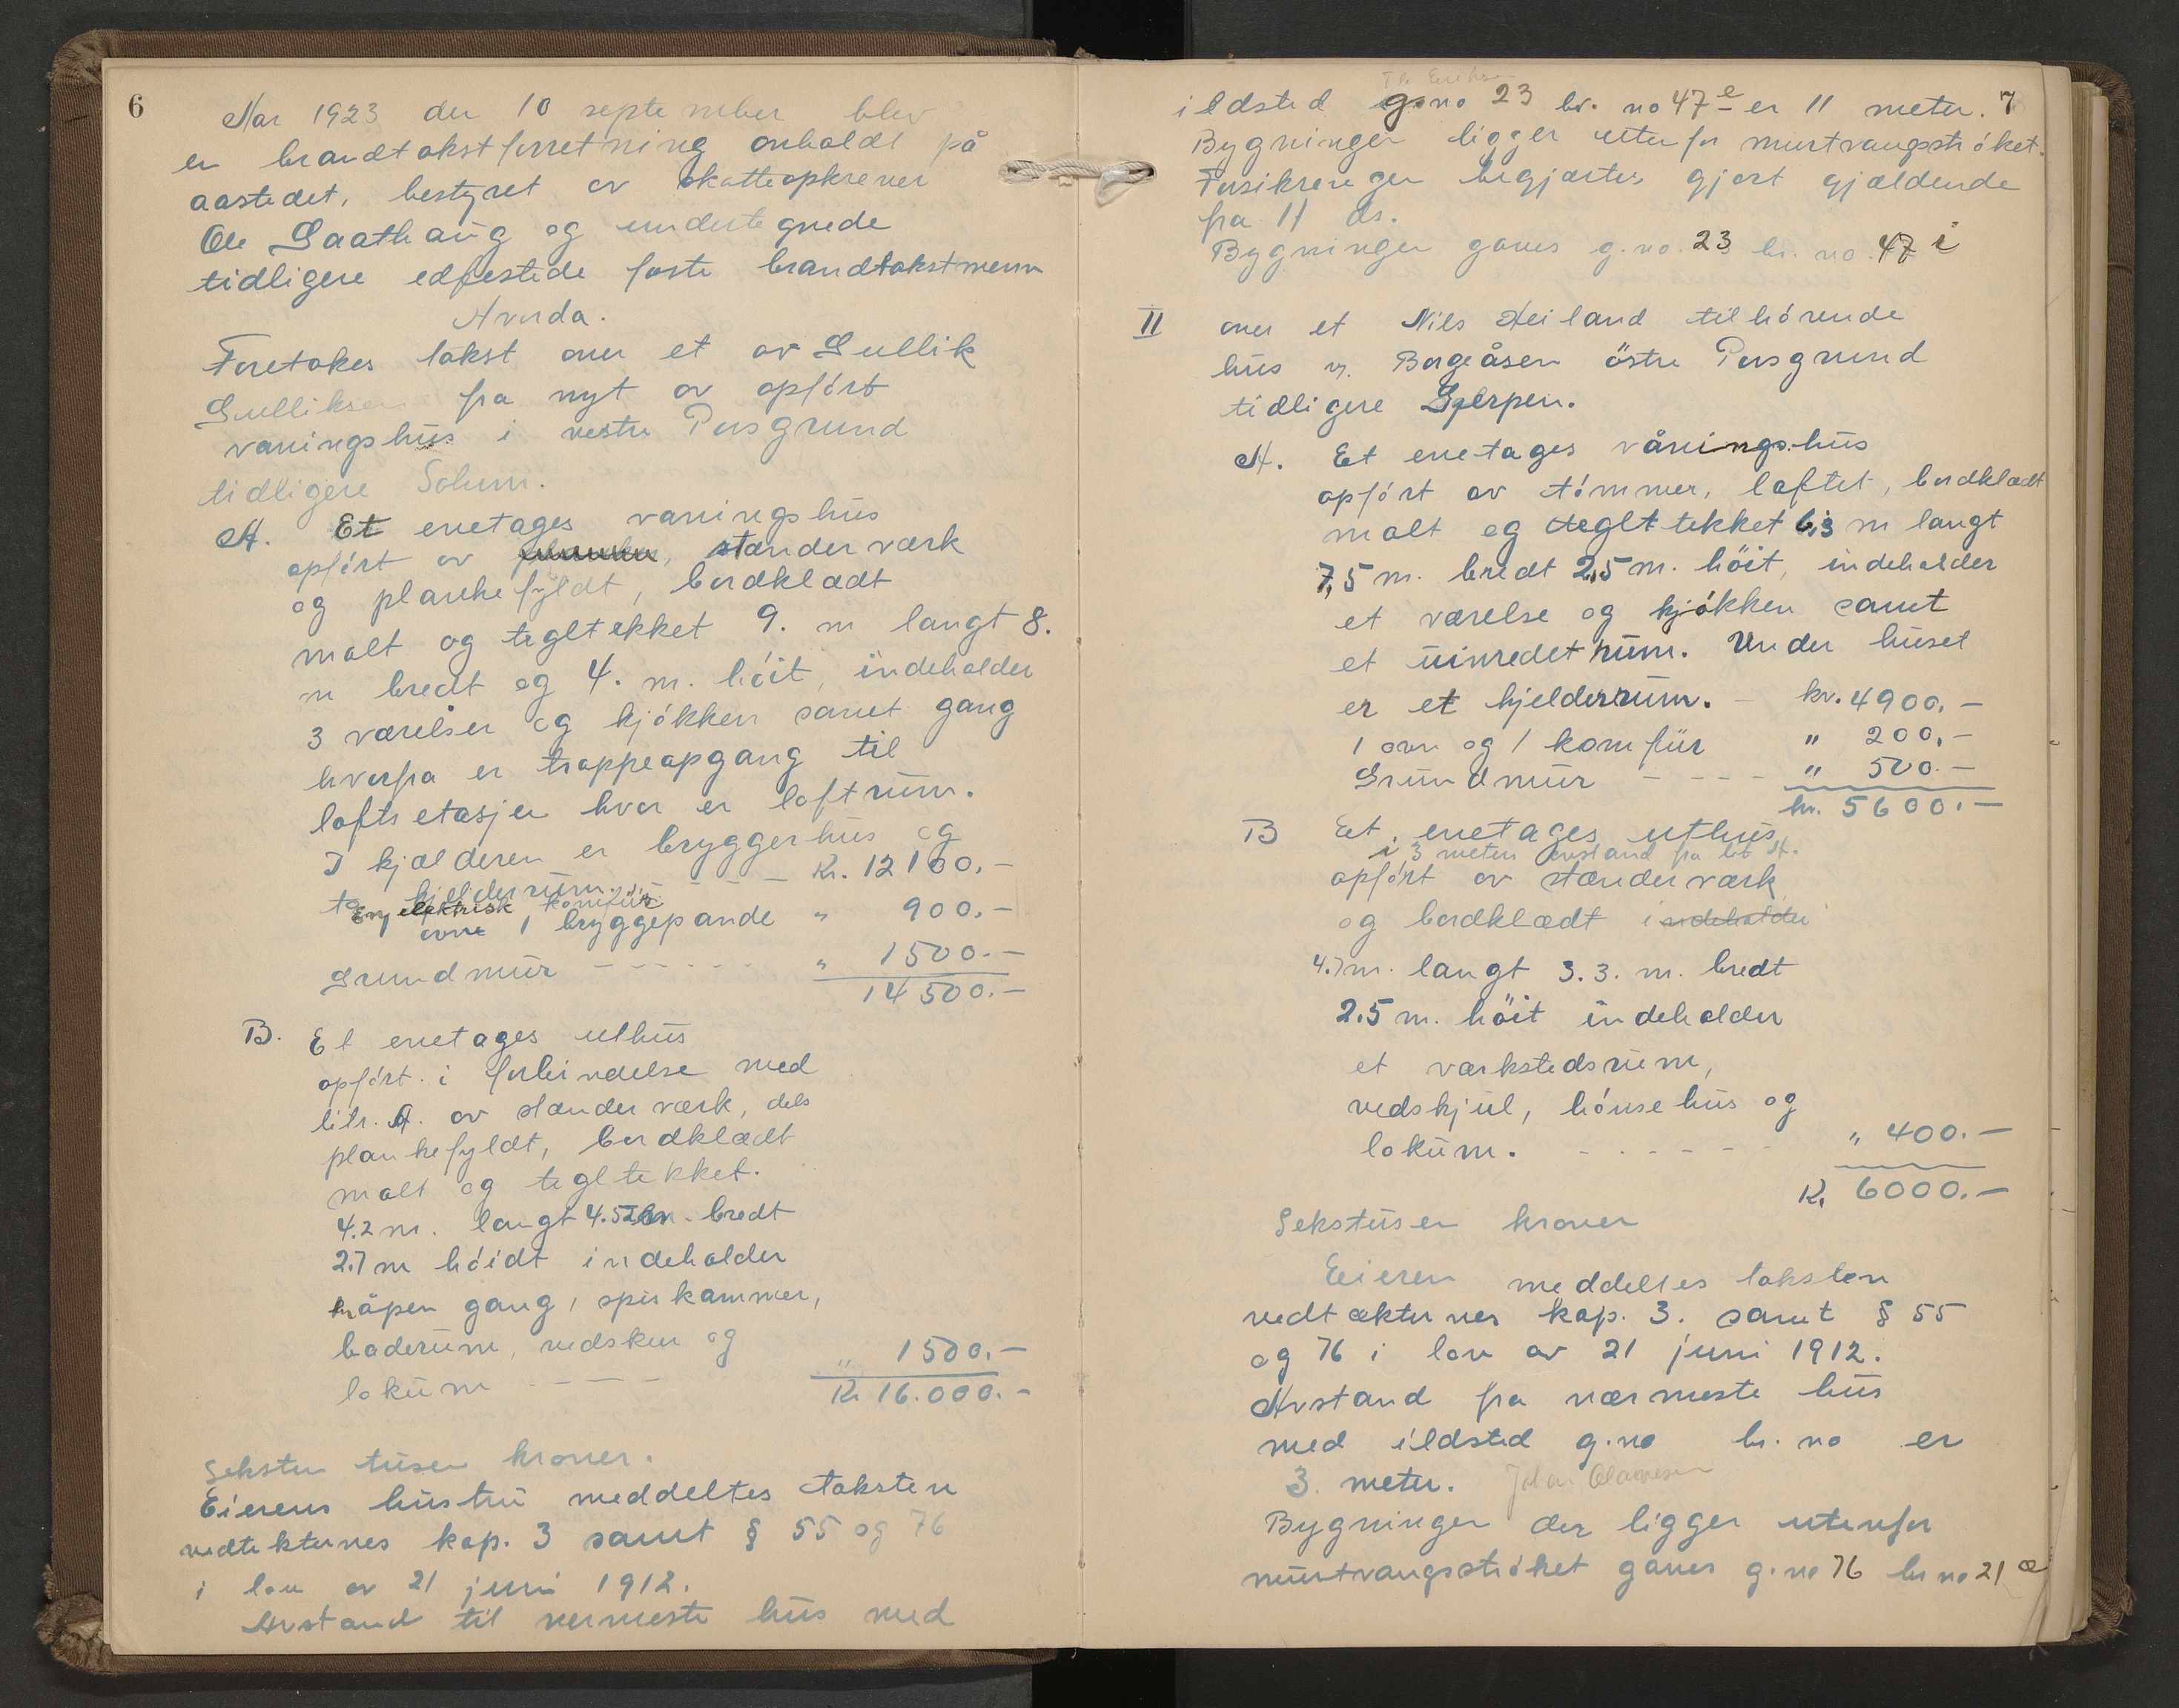 6
Aar 1923 den 10 september blev
en brandtakstforretning avholdt på
aastedet, bestyret av skatteopkræver
Ole Gaathaug og undertegnede
tidligere edfestede faste brandtakstmenn
Hvorda.
Foretokes takst over et av Gullik
Gulliksen fra nyt av opført
vaningshus i vestre Porsgrund
tidligere Solum.
A. Et enetages vaningshus
opført av stænderværk
og plankefyldt, bordklædt
malt og tegltekket 9. m langt 8.
m bredt og 4. m. høit, indeholder
3 værelser og kjøkken samt gang
hvorfra er trappeopgang til
loftsetasjen hvor er loftrum.
I kjælderen er bryggerhus og
to kjelderrum. - - - Kr. 12100.-
En elektrisk komfür
ovne 1 bryggepande " 900.-
Grundmur - - - - - " 1500.-
14500.-
B. Et enetages uthus
opført i forbindelse med
litr. A. av stænderværk, dels
plankefyldt, bordklædt
malt og tegltekket.
4.2 m. langt 4.5 m. bredt
2.7 m høidt indeholder
åpen gang, spiskammer,
baderum, vedskur og
lokum - - - " 1500.-
Kr 16.000.-
Seksten tusen kroner.
Eierens hustru meddeltes taksten
vedtekternes kap. 3 samt § 55 og 76
i lov av 21 juni 1912.
Avstand til nermeste hus med
7
Th. Eriksen
ildsted g.no 23 br. no 47 e er 11 meter.
Bygningen ligger utenfor murtvangstrøket.
Forsikringen begjærtes gjort gjældende
fra 11 ds.
Bygningen gaves g.no. 23 br. no. 47 i
II over et Nils Heiland tilhørende
hus v. Borgeåsen östre Porsgrund
tidligere Gjerpen.
A. Et enetages våningshus
opført av tømmer, loftet, bordklædt
malt og teglttekket 6,3 m langt
7,5 m. bredt 2,5 m. höit, indeholder
et værelse og kjøkken samt
et uinredet rum. Under huset
er et kjelderrum. - kr. 4900.-
1 ovn og 1 komfür " 200.-
Grundmur - - - - " 500.-
kr. 5600.-
B Et enetages uthus
i 3 meters avstand fra lit A.
opført av stænderværk
og bordklædt indeholder
4.7 m. langt 3.3. m. bredt
2.5 m. höit indeholder
et værkstedsrum,
vedskjul, hönsehus og
lokum. - - - - - " 400.-
K. 6000.-
Sekstusen kroner
Eieren meddeltes taksten
vedtækternes kap. 3. samt § 55
og 76 i lov av 21 juni 1912.
Avstand fra nærmeste hus
med ildsted g.no br. no er
3. meter. Johan Olavesen
Bygningen der ligger utenfor
murtvangsstrøket gaves g.no 76 br no 21 æ